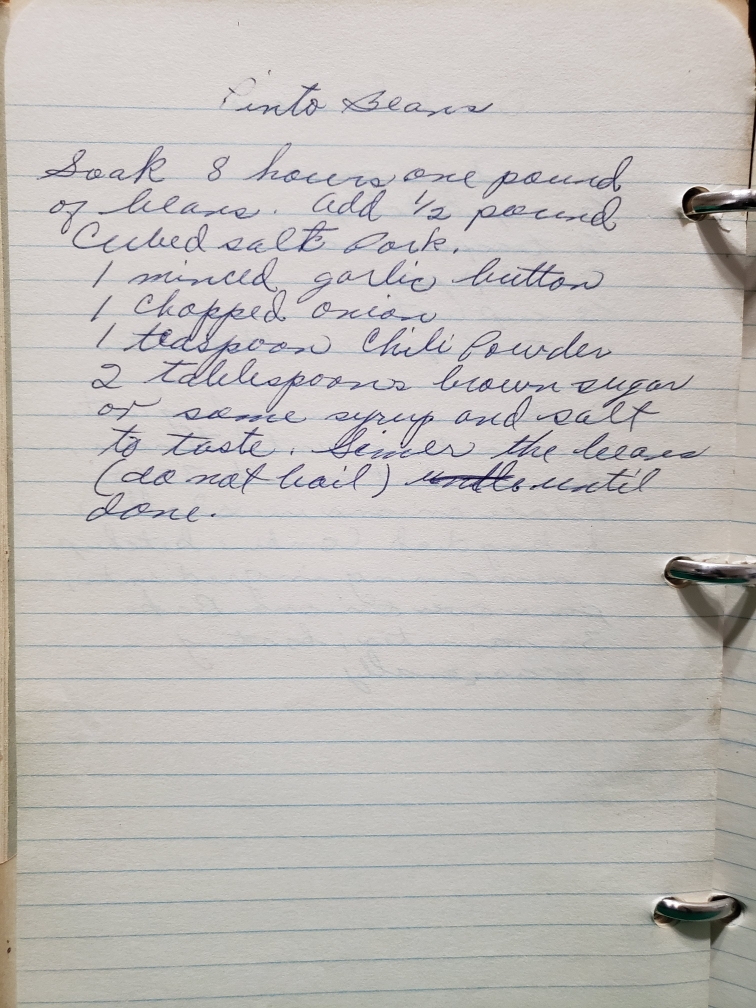 Pinto Beans
Soak 8 hours one pound
of beans. Add 1/2 pound
Cubed salt Pork.
1 minced garlic button
1 chopped onion
1 teaspoon Chili Powder
2 tablespoons brown sugar
or some syrup and salt
to taste. Simer the beans
(do not boil) until
done.